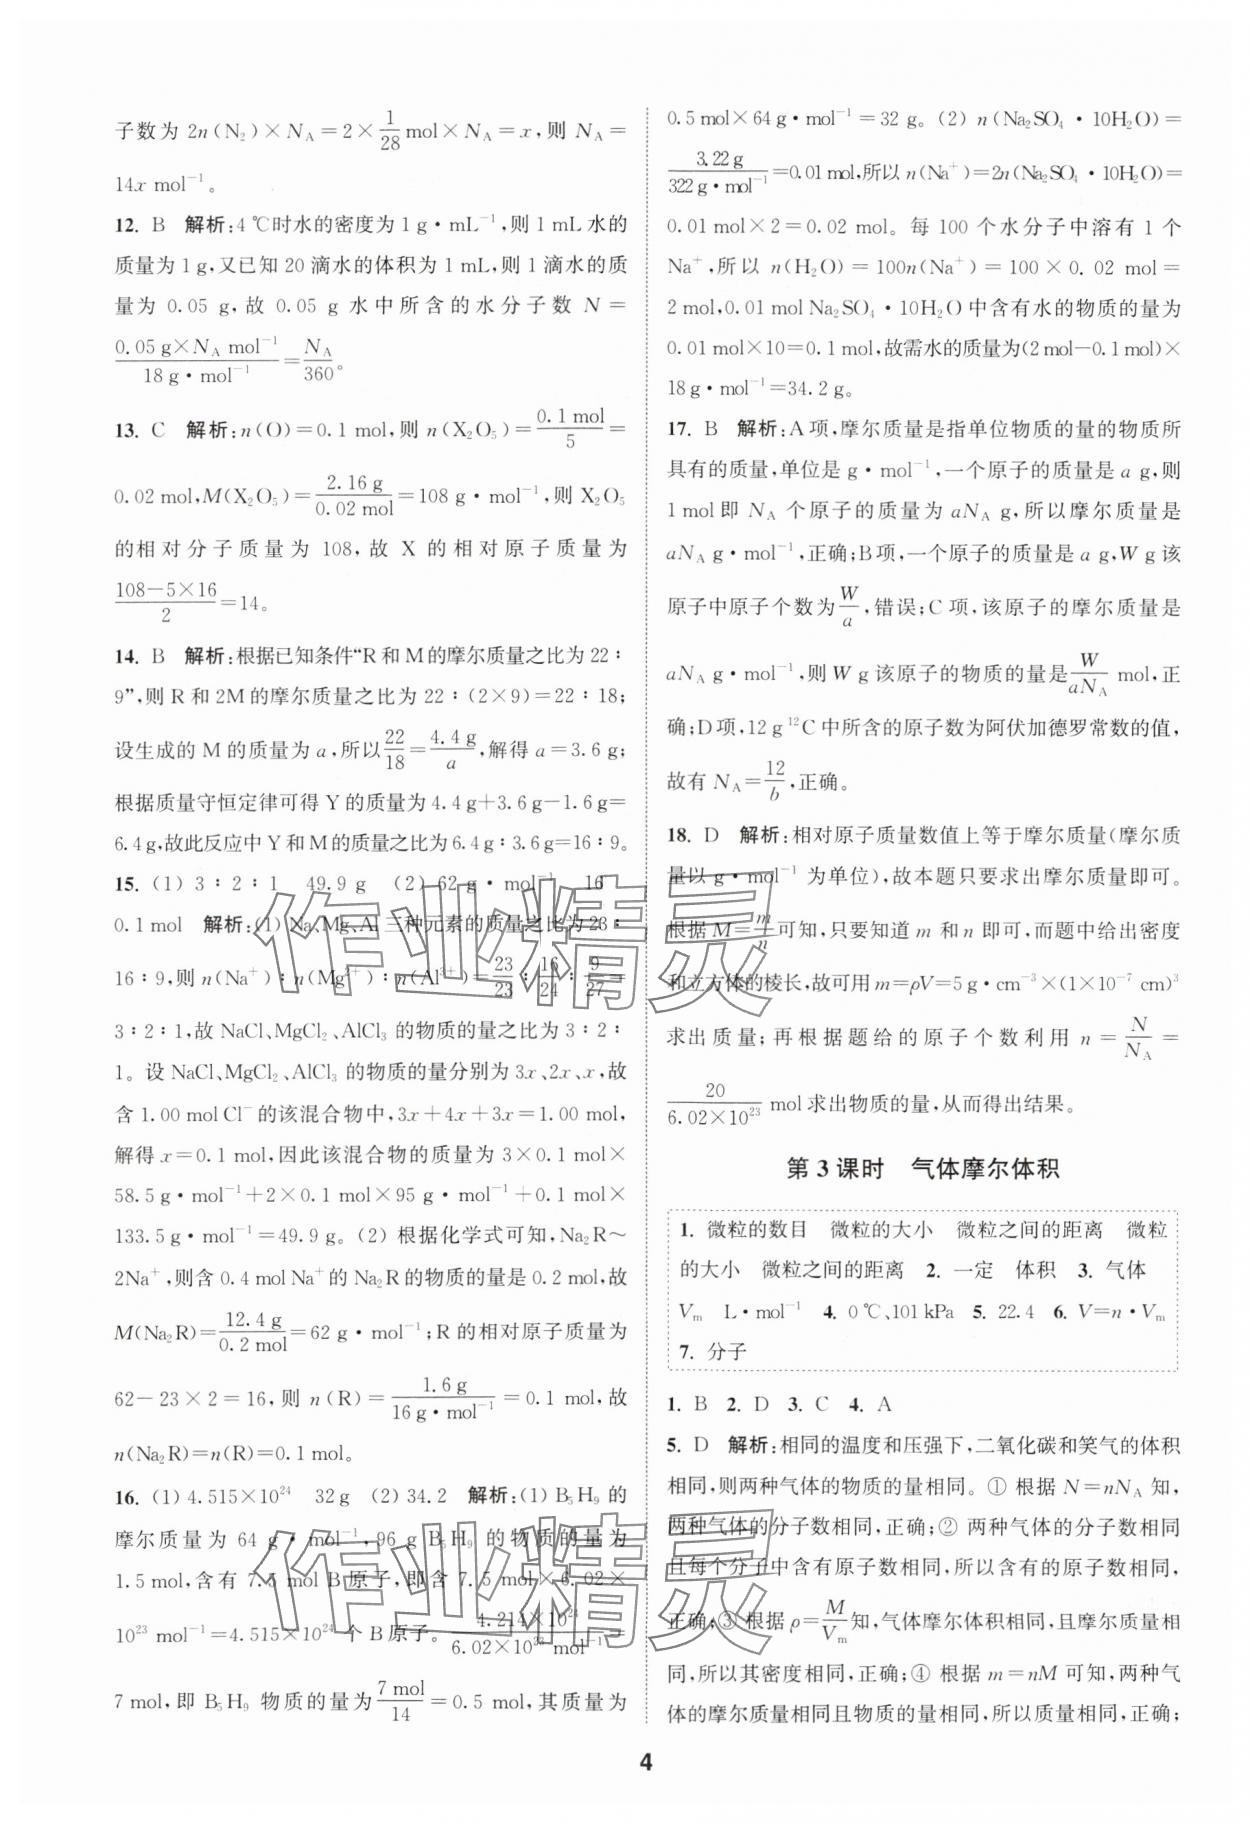 子数为 2n(N₂)×N_A=2×1/28 mol×N_A=x,则 N_A=
14x mol⁻¹。
12. B 解析:4 ℃时水的密度为 1 g·mL⁻¹,则 1 mL 水的
质量为 1 g,又已知 20 滴水的体积为 1 mL,则 1 滴水的质
量为 0.05 g,故 0.05 g 水中所含的水分子数 N=
0.05 g×N_A mol⁻¹/18 g·mol⁻¹=N_A/360。
13. C 解析:n(O)=0.1 mol,则 n(X₂O₅)=0.1 mol/5=
0.02 mol,M(X₂O₅)=2.16 g/0.02 mol=108 g·mol⁻¹,则 X₂O₅
的相对分子质量为 108,故 X 的相对原子质量为
108-5×16/2=14。
14. B 解析:根据已知条件“R 和 M 的摩尔质量之比为 22∶
9”,则 R 和 2M 的摩尔质量之比为 22∶(2×9)=22∶18;
设生成的 M 的质量为 a,所以22/18=4.4 g/a,解得 a=3.6 g;
根据质量守恒定律可得 Y 的质量为 4.4 g+3.6 g-1.6 g=
6.4 g,故此反应中 Y 和 M 的质量之比为 6.4 g∶3.6 g=16∶9。
15. (1) 3∶2∶1 49.9 g (2) 62 g·mol⁻¹ 16
0.1 mol 解析:(1) Na、Mg、Al 三种元素的质量之比为 23∶
16∶9,则 n(Na⁺)∶n(Mg²⁺)∶n(Al³⁺)=23/23∶16/24∶9/27=
3∶2∶1,故 NaCl、MgCl₂、AlCl₃ 的物质的量之比为 3∶2∶
1。设 NaCl、MgCl₂、AlCl₃ 的物质的量分别为 3x、2x、x,故
含 1.00 mol Cl⁻ 的该混合物中,3x+4x+3x=1.00 mol,
解得 x=0.1 mol,因此该混合物的质量为 3×0.1 mol×
58.5 g·mol⁻¹+2×0.1 mol×95 g·mol⁻¹+0.1 mol×
133.5 g·mol⁻¹=49.9 g。(2) 根据化学式可知,Na₂R～
2Na⁺,则含 0.4 mol Na⁺ 的 Na₂R 的物质的量是 0.2 mol,故
M(Na₂R)=12.4 g/0.2 mol=62 g·mol⁻¹;R 的相对原子质量为
62-23×2=16,则 n(R)=1.6 g/16 g·mol⁻¹=0.1 mol,故
n(Na₂R)=n(R)=0.1 mol。
16. (1) 4.515×10²⁴ 32 g (2) 34.2 解析:(1) B₅H₉ 的
摩尔质量为 64 g·mol⁻¹,96 g B₅H₉ 的物质的量为
1.5 mol,含有 7.5 mol B 原子,即含 7.5 mol×6.02×
10²³ mol⁻¹=4.515×10²⁴ 个 B 原子。4.214×10²⁴/6.02×10²³ mol⁻¹=
7 mol,即 B₅H₉ 物质的量为7 mol/14=0.5 mol,其质量为
0.5 mol×64 g·mol⁻¹=32 g。(2) n(Na₂SO₄·10H₂O)=
3.22 g/322 g·mol⁻¹=0.01 mol,所以 n(Na⁺)=2n(Na₂SO₄·10H₂O)=
0.01 mol×2=0.02 mol。每 100 个水分子中溶有 1 个
Na⁺,所以 n(H₂O)=100n(Na⁺)=100×0.02 mol=
2 mol,0.01 mol Na₂SO₄·10H₂O 中含有水的物质的量为
0.01 mol×10=0.1 mol,故需水的质量为(2 mol-0.1 mol)×
18 g·mol⁻¹=34.2 g。
17. B 解析:A 项,摩尔质量是指单位物质的量的物质所
具有的质量,单位是 g·mol⁻¹,一个原子的质量是 a g,则
1 mol 即 N_A 个原子的质量为 aN_A g,所以摩尔质量是
aN_A g·mol⁻¹,正确;B 项,一个原子的质量是 a g,W g 该
原子中原子个数为W/a,错误;C 项,该原子的摩尔质量是
aN_A g·mol⁻¹,则 W g 该原子的物质的量是W/aN_A mol,正
确;D 项,12 g ¹²C 中所含的原子数为阿伏加德罗常数的值,
故有 N_A=12/b,正确。
18. D 解析:相对原子质量数值上等于摩尔质量(摩尔质
量以 g·mol⁻¹ 为单位),故本题只要求出摩尔质量即可。
根据 M=m/n可知,只要知道 m 和 n 即可,而题中给出密度
和立方体的棱长,故可用 m=ρV=5 g·cm⁻³×(1×10⁻⁷ cm)³
求出质量;再根据题给的原子个数利用 n=N/N_A=
20/6.02×10²³ mol 求出物质的量,从而得出结果。
第 3 课时 气体摩尔体积
1. 微粒的数目 微粒的大小 微粒之间的距离 微粒
的大小 微粒之间的距离 2. 一定 体积 3. 气体
V_m L·mol⁻¹ 4. 0 ℃、101 kPa 5. 22.4 6. V=n·V_m
7. 分子
1. B 2. D 3. C 4. A
5. D 解析:相同的温度和压强下,二氧化碳和笑气的体积
相同,则两种气体的物质的量相同。① 根据 N=nN_A 知,
两种气体的分子数相同,正确;② 两种气体的分子数相同
且每个分子中含有原子数相同,所以含有的原子数相同,
正确;③ 根据 ρ=M/V_m知,气体摩尔体积相同,且摩尔质量相
同,所以其密度相同,正确;④ 根据 m=nM 可知,两种气
体的摩尔质量相同且物质的量相同,所以质量相同,正确;
4
作业精灵
作业精灵